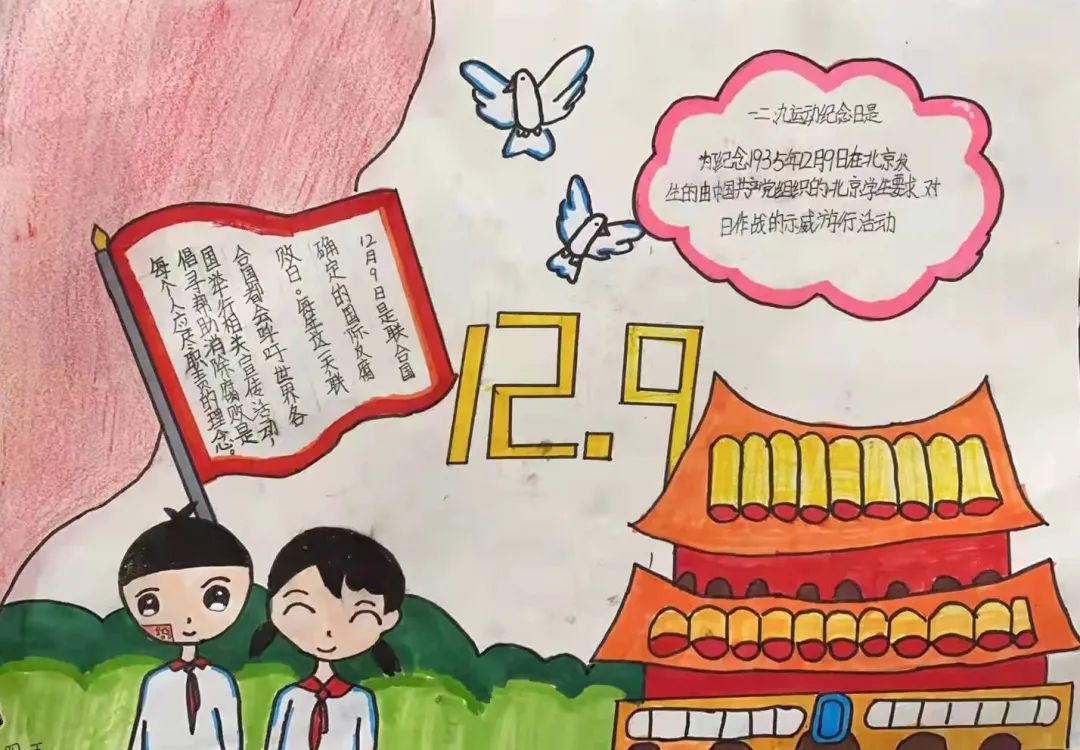 12月9日是联合国
确定的国际反腐
败日。每逢这一天联
合国都会呼吁世界各
国举行相关宣传活动，
倡寻帮助消除腐败是
每个人应尽职责的理念。
一二.九运动纪念日是
为纪念1935年12月9日在北京发
生的由中国共产党组织的北京学生要求对
日作战的示威游行活动
12.9